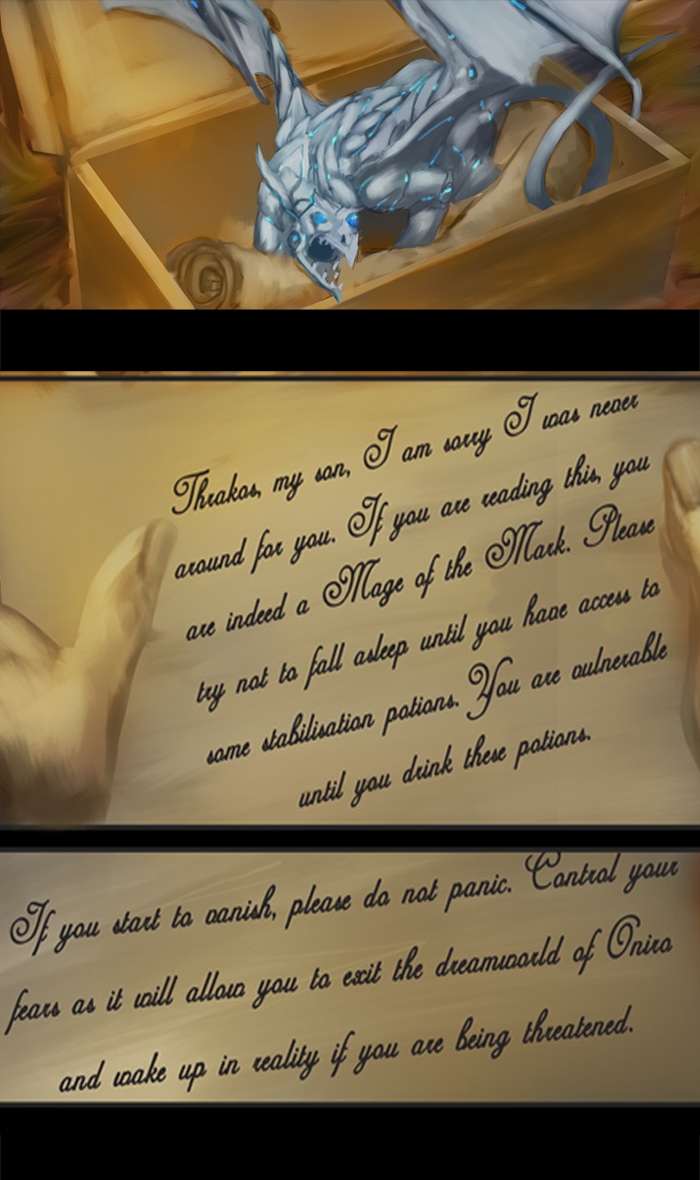 Thrakos, my son, I am sorry I was never
around for you. If you are reading this, you
are indeed a Mage of the Mark. Please
try not to fall asleep until you have access to
some stabilisation potions. You are vulnerable
until you drink these potions.
If you start to vanish, please do not panic. Control your
fears as it will allow you to exit the dreamworld of Oniro
and wake up in reality if you are being threatened.